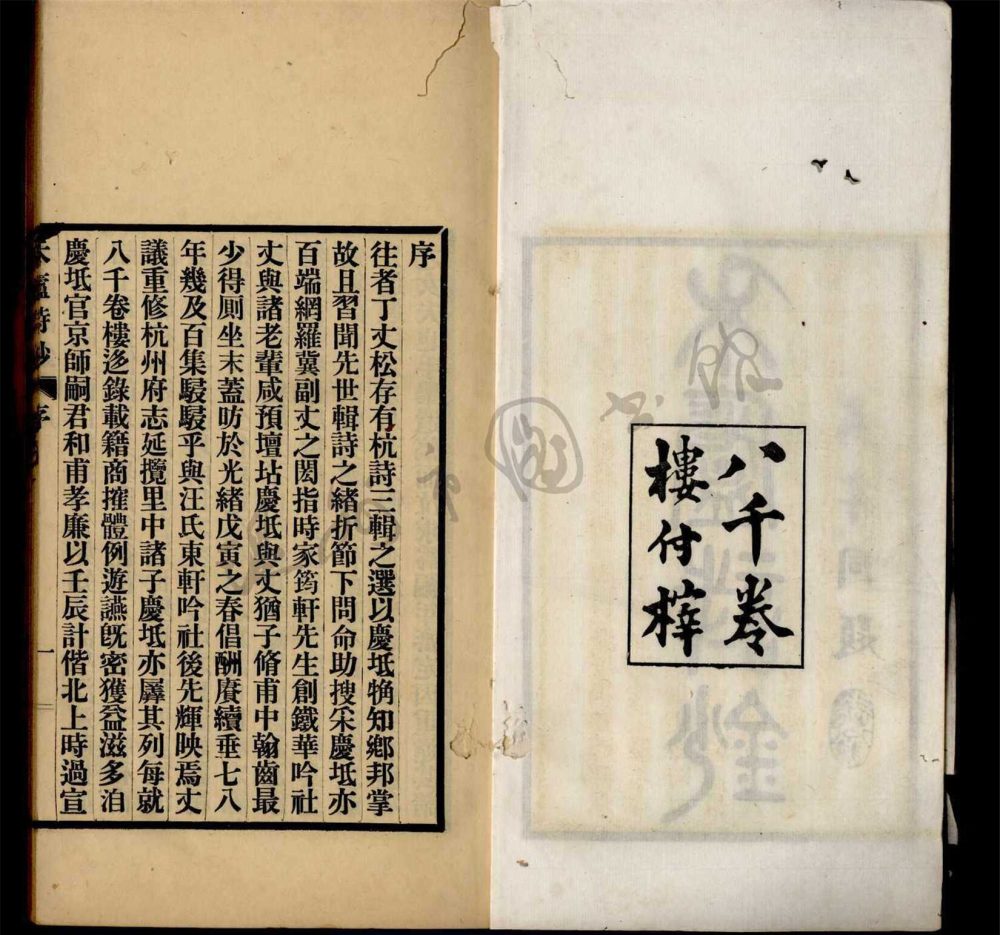 八千卷
樓付梓
序
往者丁丈松存有杭詩三輯之選以慶坻觕知鄉邦掌
故且習聞先世輯詩之緒折節下問命助搜宷慶坻亦
百端網羅冀副丈之閎指時家筠軒先生創鐵華吟社
丈與諸老輩咸預壇坫慶坻與丈猶子脩甫中翰齒最
少得厠坐末蓋昉於光緒戊寅之春倡酬賡續垂七八
年幾及百集駸駸乎與汪氏東軒吟社後先輝映焉丈
議重修杭州府志延攬里中諸子慶坻亦厠其列每就
八千卷樓迻錄載籍商搉體例遊讌旣密獲益滋多洎
慶坻官京師嗣君和甫孝廉以壬辰計偕北上時過宣
詩鈔
序
一